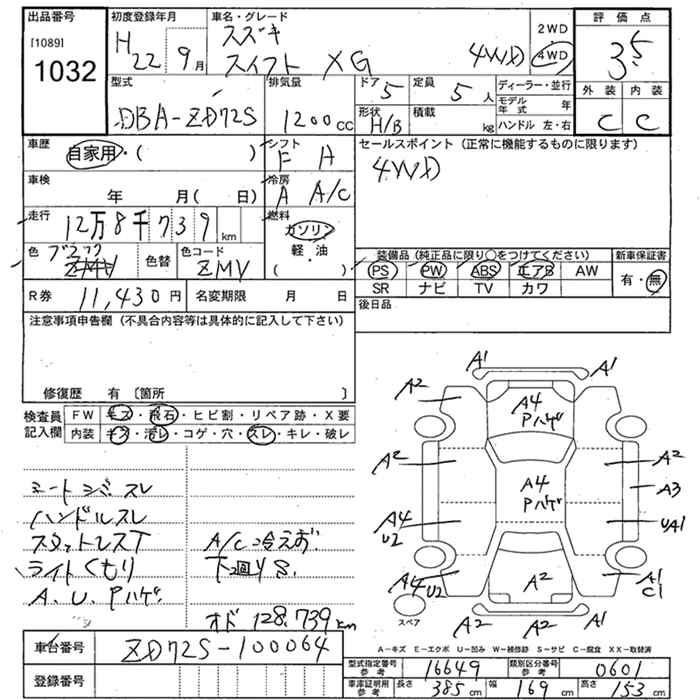 出品番号 初度登録年月 車名・グレード 評価点
[1089] 1032
H22 9月
スズキ
スイフト XG 4WD
2WD
4WD
3.5
外装 内装
C C
型式 排気量 ドア 定員 ディーラー・並行
DBA-ZD72S 1200cc 5 5人
モデル年式 年
形状 積載 ハンドル 左・右
H/B kg
車歴 自家用・( ) シフト F A
セールスポイント (正常に機能するものに限ります)
4WD
車検 年 月( 日) 冷房 A A/C
走行 12万8千739km 燃料 ガソリン
軽・油
( )
色 ブラック 色替 色コード ZMV
装備品 (純正品に限り○をつけてください) 新車保証書
PS PW ABS エアB AW 有・無
SR ナビ TV カワ
R券 11,430円 名変期限 月 日
後日品
注意事項申告欄 (不具合内容等は具体的に記入して下さい)
修復歴 有 〔箇所 〕
検査員記入欄
FW キズ・飛石・ヒビ割・リペア跡・X要
内装 キズ・汚レ・コゲ・穴・スレ・キレ・破レ
シートシミスレ
ハンドルスレ
スタットレスT
ライトくもり
A.U.Pハゲ
A/C冷えお
オド 128.739km
A1
A2 A1
A4
Pハゲ
A2 A2
A4
Pハゲ
A3
A4
U2
UA1
A4U2 A2 A1
C1
スペア A2 A2
A-キズ E-エクボ U-凹み W-補修跡 S-サビ C-腐食 XX-取替済
車台番号 ZD72S-100064
登録番号
型式指定番号 参考 16649 類別区分番号 参考 0601
車庫証明用 参考 長さ 385cm 幅 169cm 高さ 153cm